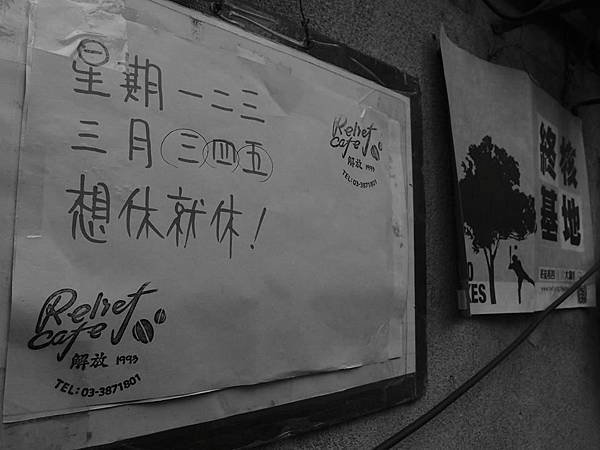 星期一二三
三月三四五
想休就休!
Relief
cafe
解放 1993
TEL:03-3871801
Relief
cafe
解放 1993
TEL:03-3871801
終核
基地
O
KES